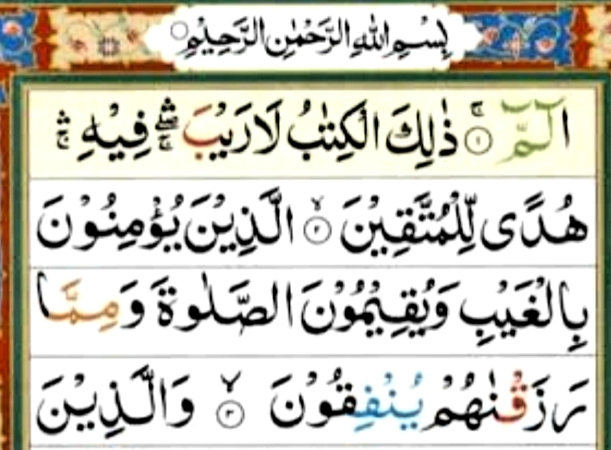 بِسْمِ اللهِ الرَّحْمٰنِ الرَّحِيْمِ
الٓمّٓ ۚ﴿۱﴾ ذٰلِكَ الْكِتٰبُ لَا رَيْبَ ۛۖۚ فِيْهِ ۛۚ
هُدًى لِّلْمُتَّقِيْنَ ۙ﴿۲﴾ الَّذِيْنَ يُؤْمِنُوْنَ
بِالْغَيْبِ وَيُقِيْمُوْنَ الصَّلٰوةَ وَمِمَّا
رَزَقْنٰهُمْ يُنْفِقُوْنَ ۙ﴿۳﴾ وَالَّذِيْنَ